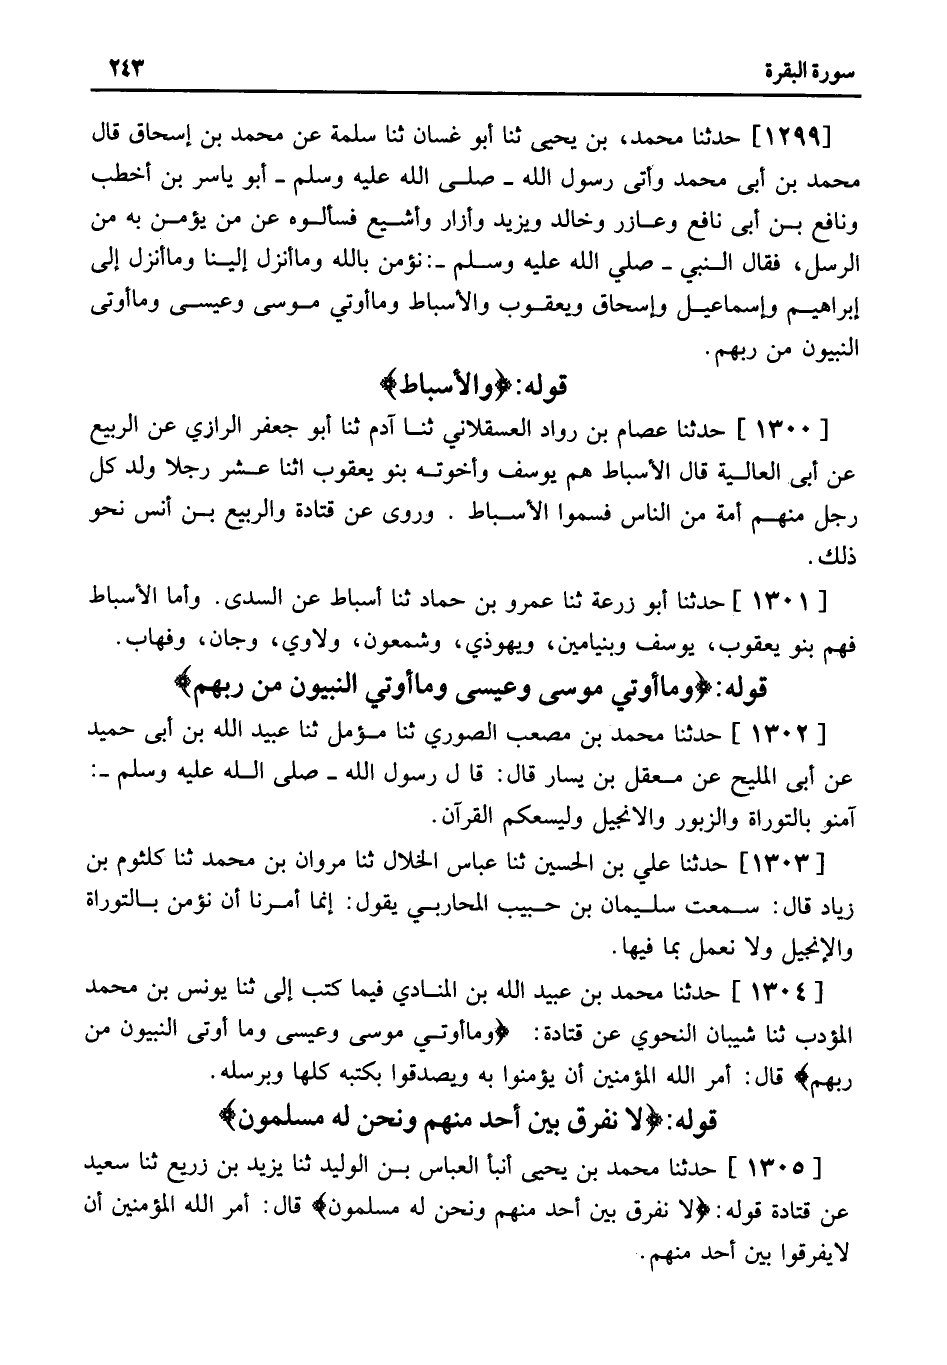 سورة البقرة
٢٤٣
[١٢٩٩] حدثنا محمد، بن يحيى ثنا أبو غسان ثنا سلمة عن محمد بن إسحاق قال
محمد بن أبى محمد وأتى رسول الله ـ صلى الله عليه وسلم ـ أبو ياسر بن أخطب
ونافع بن أبى نافع وعازر وخالد ويزيد وأزار وأشيع فسألوه عن من يؤمن به من
الرسل، فقال النبي ـ صلي الله عليه وسلم ـ:نؤمن بالله وماأنزل إلينا وماأنزل إلى
إبراهيم وإسماعيل وإسحاق ويعقوب والأسباط وماأوتي موسى وعيسى وماأوتى
النبيون من ربهم.
قوله:﴿والأسباط﴾
[ ١٣٠٠ ] حدثنا عصام بن رواد العسقلاني ثنا آدم ثنا أبو جعفر الرازي عن الربيع
عن أبى العالية قال الأسباط هم يوسف وأخوته بنو يعقوب اثنا عشر رجلا ولد كل
رجل منهم أمة من الناس فسموا الأسباط . وروى عن قتادة والربيع بن أنس نحو
ذلك.
[ ١٣٠١ ] حدثنا أبو زرعة ثنا عمرو بن حماد ثنا أسباط عن السدى. وأما الأسباط
فهم بنو يعقوب، يوسف وبنيامين، ويهوذي، وشمعون، ولاوي، وجان، وفهاب.
قوله:﴿وماأوتي موسى وعيسى وماأوتي النبيون من ربهم﴾
[ ١٣٠٢ ] حدثنا محمد بن مصعب الصوري ثنا مؤمل ثنا عبيد الله بن أبى حميد
عن أبى المليح عن معقل بن يسار قال: قا ل رسول الله ـ صلى الله عليه وسلم ـ:
آمنو بالتوراة والزبور والانجيل وليسعكم القرآن.
[١٣٠٣] حدثنا علي بن الحسين ثنا عباس الخلال ثنا مروان بن محمد ثنا كلثوم بن
زياد قال: سمعت سليمان بن حبيب المحاربي يقول: إنما أمرنا أن نؤمن بالتوراة
والإنجيل ولا نعمل بما فيها.
[ ١٣٠٤ ] حدثنا محمد بن عبيد الله بن المنادي فيما كتب إلى ثنا يونس بن محمد
المؤدب ثنا شيبان النحوي عن قتادة: ﴿وماأوتي موسى وعيسى وما أوتى النبيون من
ربهم﴾ قال: أمر الله المؤمنين أن يؤمنوا به ويصدقوا بكتبه كلها وبرسله.
قوله:﴿لا نفرق بين أحد منهم ونحن له مسلمون﴾
[ ١٣٠٥ ] حدثنا محمد بن يحيى أنبأ العباس بن الوليد ثنا يزيد بن زريع ثنا سعيد
عن قتادة قوله:﴿لا نفرق بين أحد منهم ونحن له مسلمون﴾ قال: أمر الله المؤمنين أن
لايفرقوا بين أحد منهم.